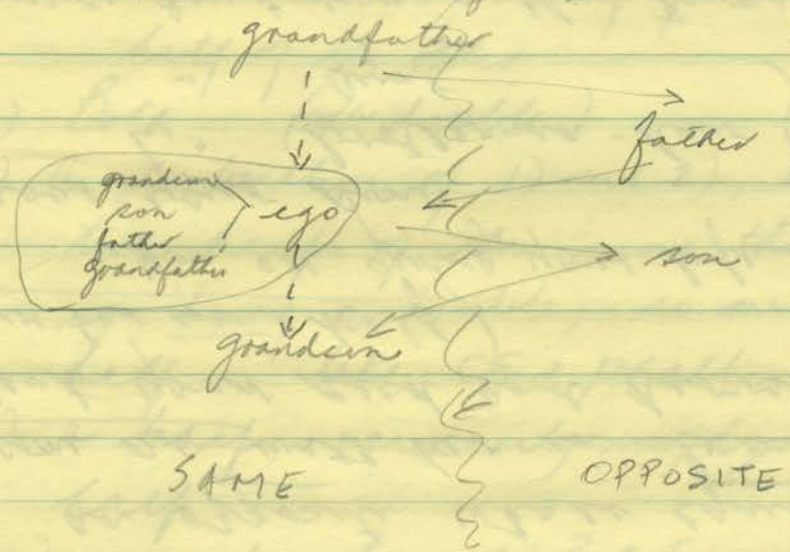 grandfather
father
grandson
son
father
grandfather
ego
son
grandson
SAME
OPPOSITE